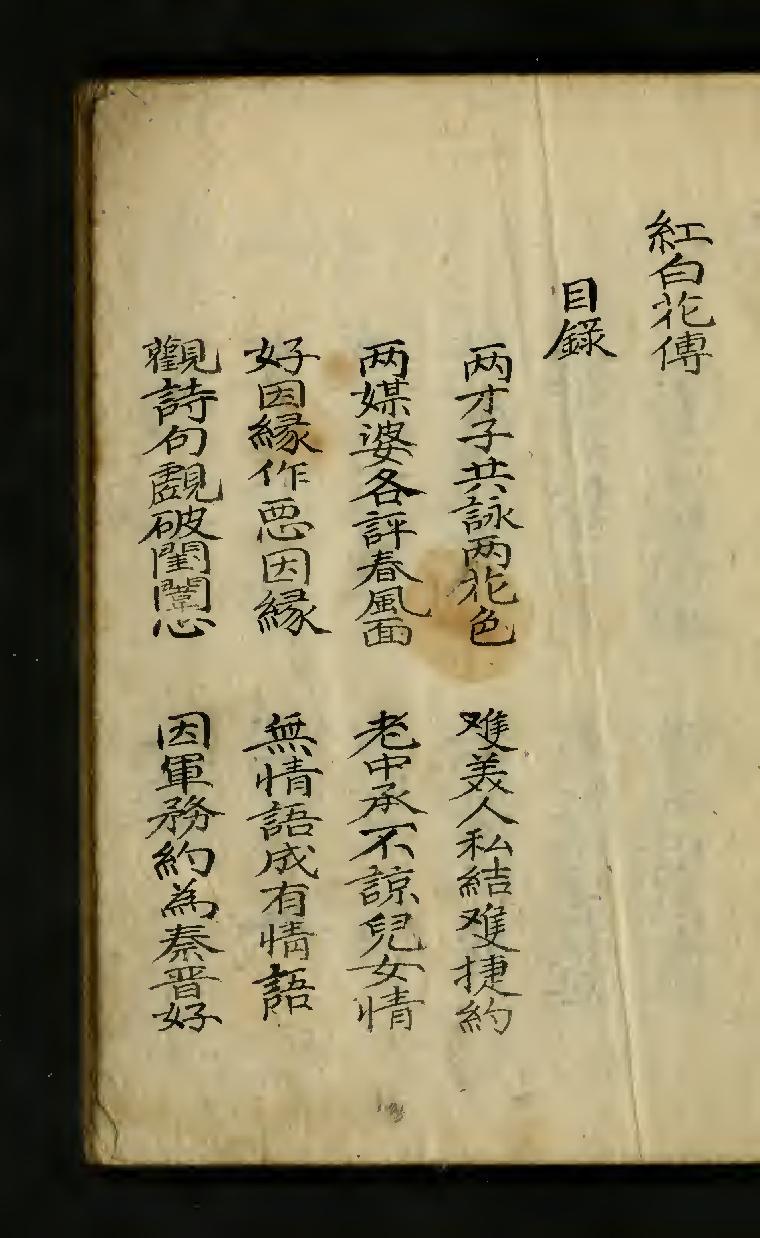 紅白花傳
目錄
两才子共詠两花色 难美人私結难捷約
两媒婆各評春風面 老中承不諒兒女情
好因緣作悪因緣 無情語成有情語
觀詩句覷破閨闈心 因軍務約為秦晋好